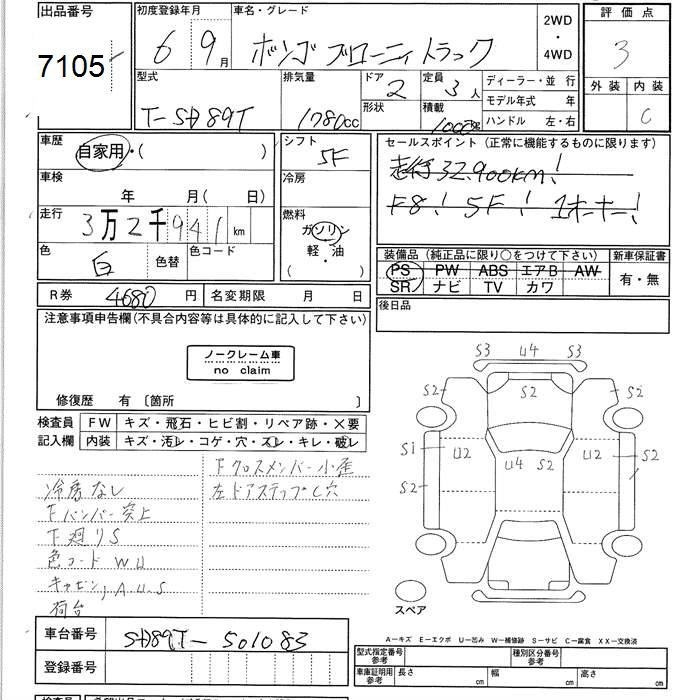 出品番号
7105
初度登録年月
6 9月
車名・グレード
ボンゴ ブローニィ トラック
2WD
・
4WD
評価点
3
外装 内装
C
型式
T-SD89T
排気量
1780cc
ドア
2
形状
定員
3人
積載
1000kg
ディーラー・並 行
モデル年式 年
ハンドル 左・右
車歴
自家用・( )
車検
年 月( 日)
走行
3万2千941km
色
白
色替
色コード
シフト
5F
冷房
燃料
ガソリン
・
軽・油
( )
セールスポイント(正常に機能するものに限ります)
走行32,900km!
F8! 5F! 1オーナー!
装備品(純正品に限り○をつけて下さい)
PS PW ABS エアB AW
SR ナビ TV カワ
新車保証書
有・無
後日品
R券 4680円
名変期限 月 日
注意事項申告欄(不具合内容等は具体的に記入して下さい)
ノークレーム車
no claim
修復歴 有〔箇所 〕
検査員
記入欄
FW キズ・飛石・ヒビ割・リペア跡・×要
内装 キズ・汚レ・コゲ・穴・スレ・キレ・破レ
Fクロスメンバー小歪
冷房なし
左ドアステップC穴
Fバンパー突上
下廻りS
色コード WU
キャビン,A.U.S
荷台
S3 U4 S3
S2 S2 S2
S1 U2 U2 S2
U4 S2
S2
スペア
A-キズ E-エクボ U-凹み W-補修跡 S-サビ C-腐食 XX-交換済
車台番号
SD89T-501083
登録番号
型式指定番号
参考
種別区分番号
参考
車庫証明用
参考
長さ cm
幅 cm
高さ cm
検査員